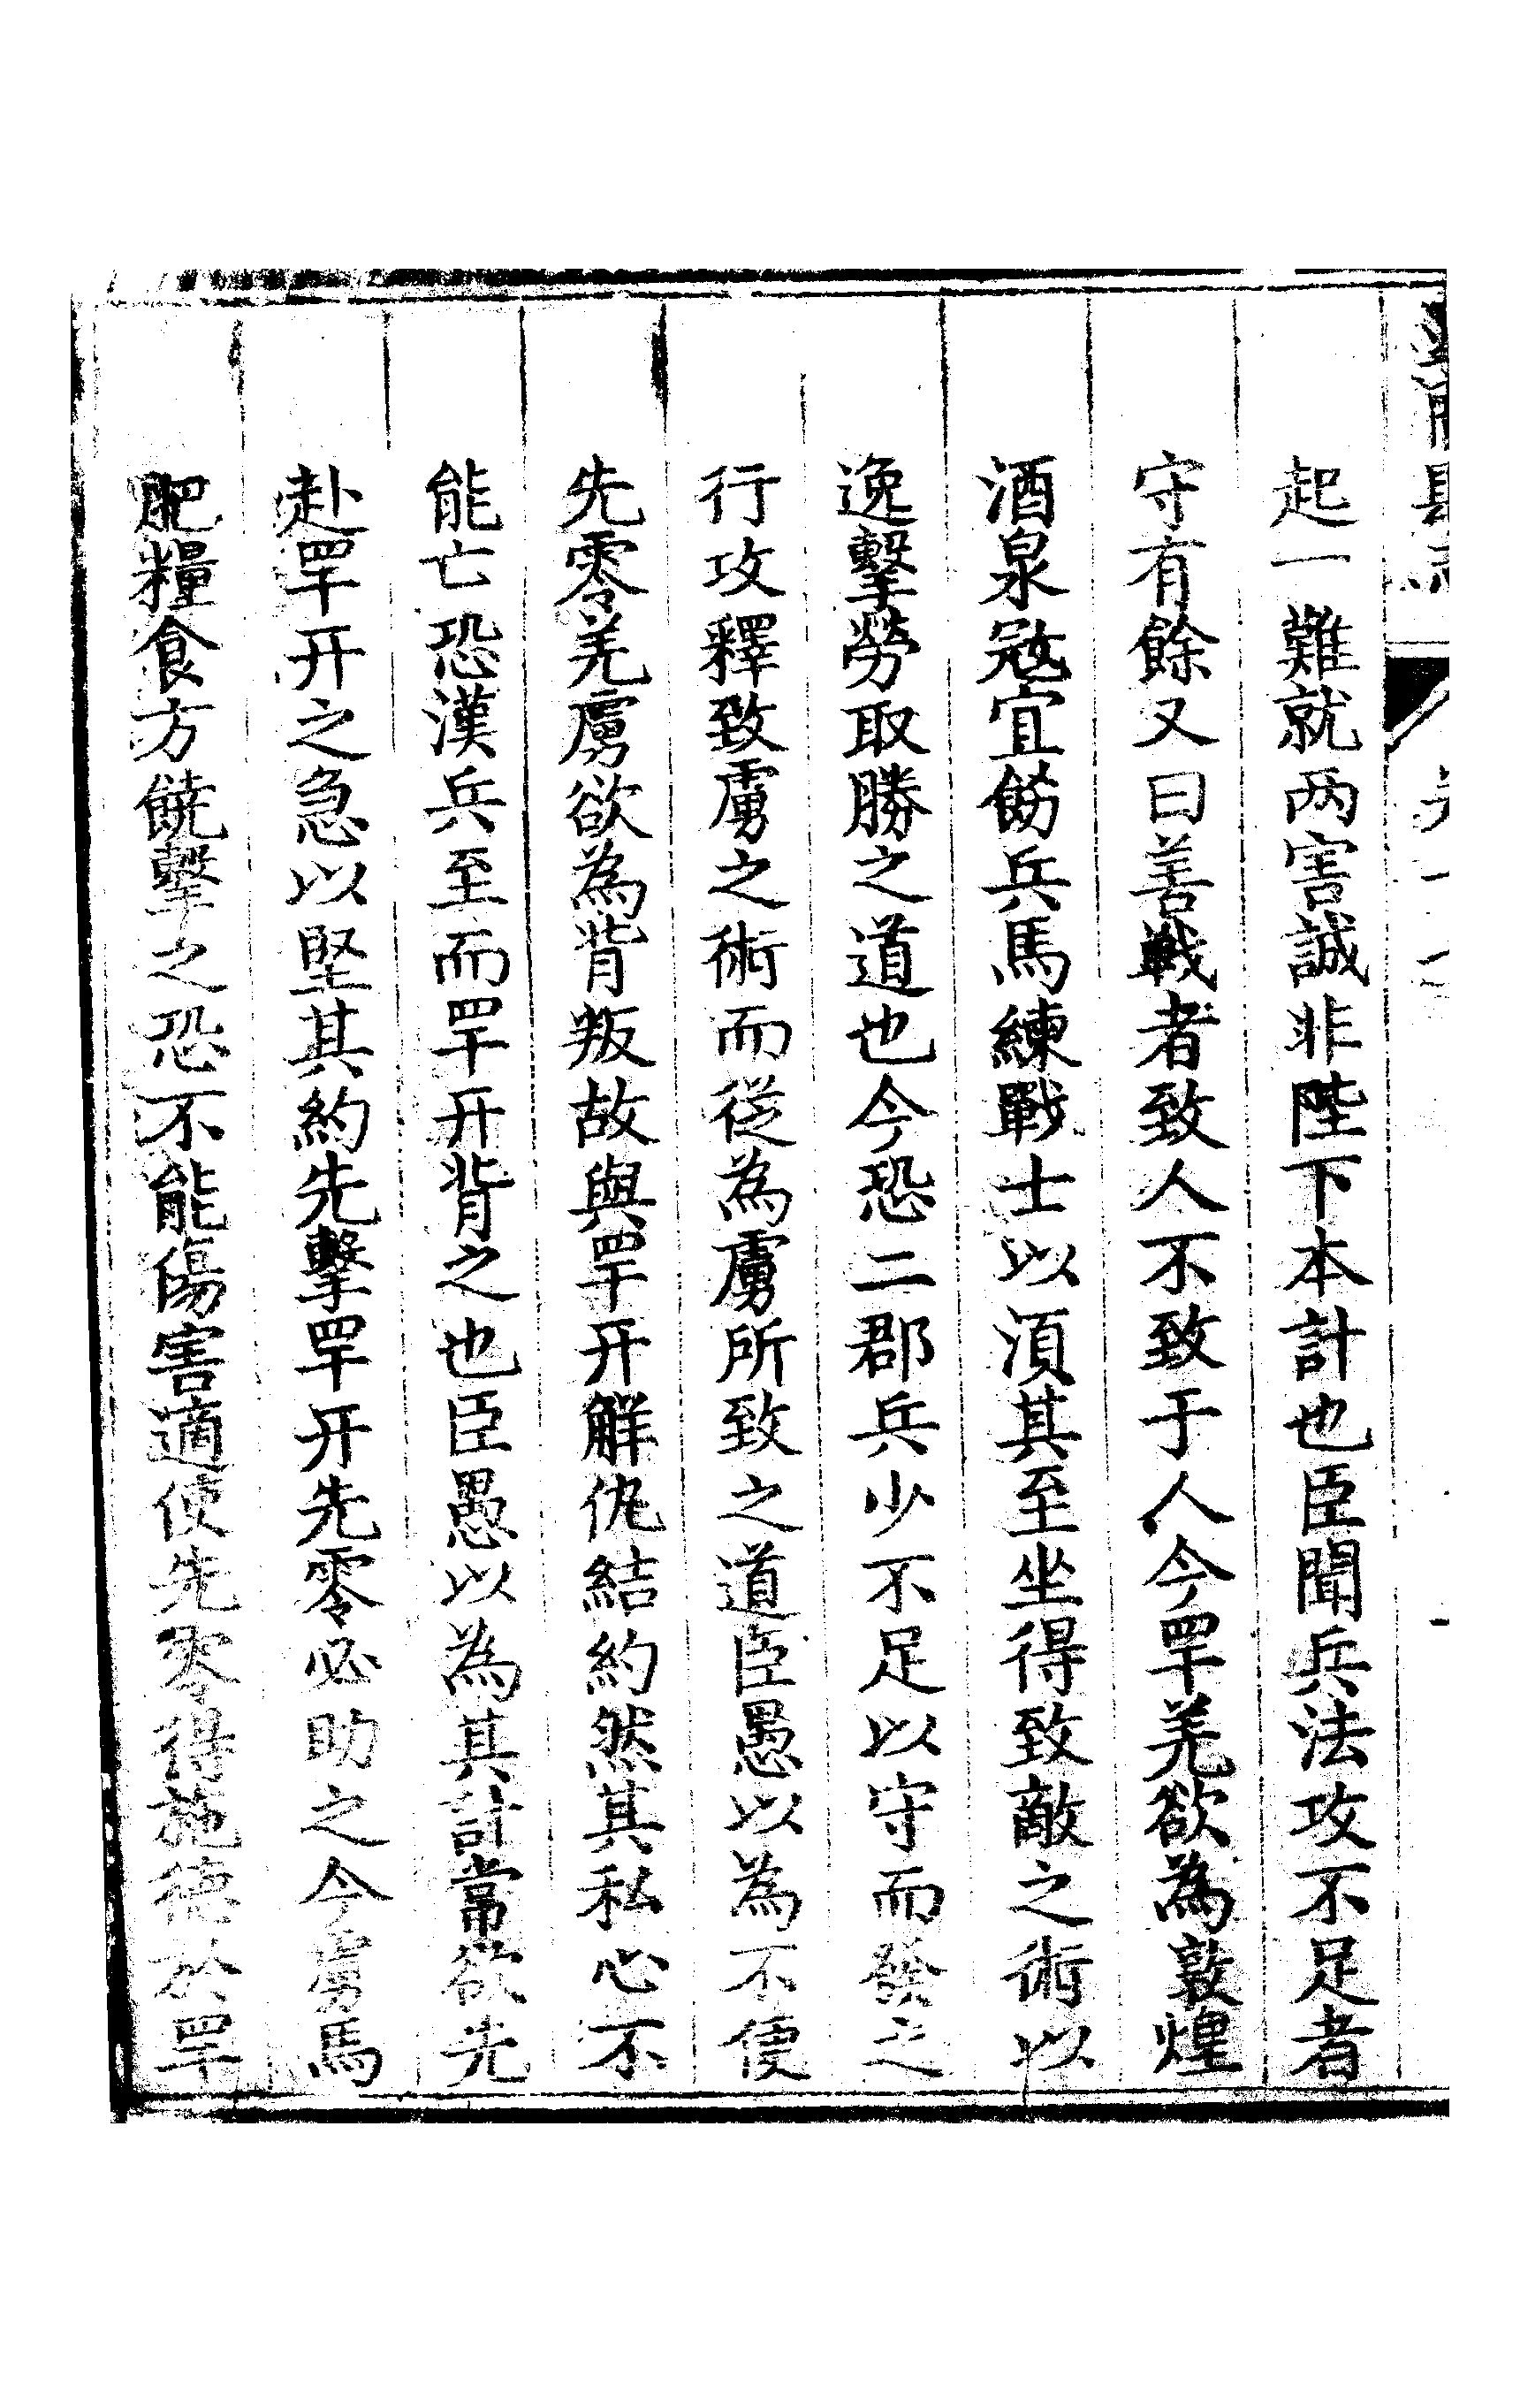 起一難就两害誠非陛下本計也臣聞兵法攻不足者
守有餘又曰善戰者致人不致于人今罕羌欲為敦煌
酒泉宼宜飭兵馬練戰士以湏其至坐得致敵之術以
逸擊勞取勝之道也今恐二郡兵少不足以守而發之
行攻釋致虜之術而從為虜所致之道臣愚以為不便
先零羌虜欲為背叛故與罕幵解仇結約然其私心不
能亡恐漢兵至而罕幵背之也臣愚以為其計常欲先
赴罕幵之急以堅其約先擊罕幵先零必助之今虜馬
肥糧食方饒擊之恐不能傷害適使先零得施德於罕